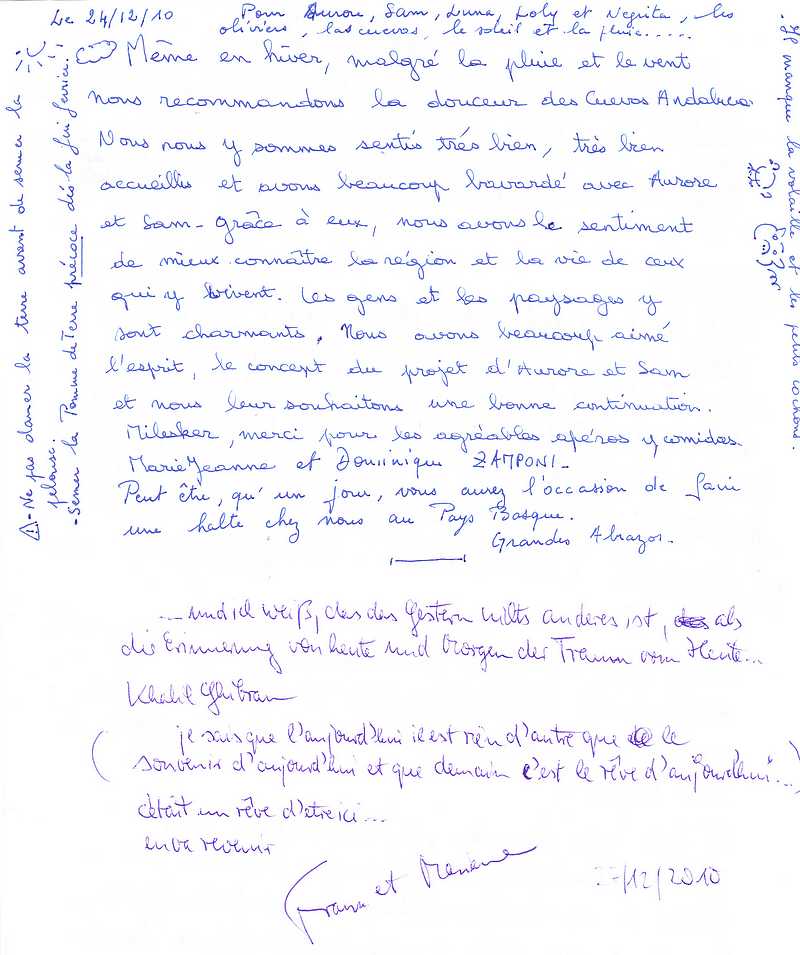 Le 24/12/10
Pour Aurore, Sam, Luna, Loly et Negrita, les
oliviers, las cuevas, le soleil et la pluie.....
Même en hiver, malgré la pluie et le vent
nous recommandons la douceur des Cuevas Andalucia
Nous nous y sommes sentis très bien, très bien
accueillis et avons beaucoup bavardé avec Aurore
et Sam - grâce à eux, nous avons le sentiment
de mieux connaître la région et la vie de ceux
qui y vivent. Les gens et les paysages y
sont charmants. Nous avons beaucoup aimé
l'esprit, le concept du projet d'Aurore et Sam
et nous leur souhaitons une bonne continuation.
Milesker, merci pour les agréables apéros y comidas
Marie Jeanne et Dominique ZAMPONI -
Peut être, qu'un jour, vous aurez l'occasion de faire
une halte chez nous au Pays Basque.
Grandes Abrazos -
- Ne pas damer la terre avant de semer la
pelouse.
- Semer la Pomme de Terre précoce dès la fin février.
- Il manque la volaille et les petits cochons.
... und ich weiß, das das Gestern nichts anderes ist, als
die Erinnerung von heute und Morgen der Traum vom Heute...
Khalil Ghibran
(je sais que l'aujourd'hui il est rien d'autre que le
souvenir d'aujourd'hui et que demain c'est le rêve d'aujourd'hui...)
c'était un rêve d'etre ici...
en va revenir
et
27/12/2010